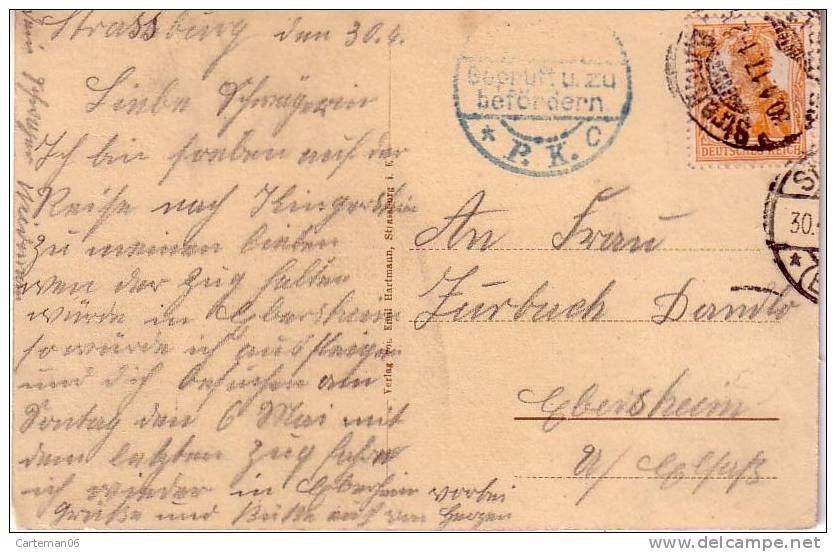 Strassburg den 30.4.
Liebe Schwägerin
Ich bin soeben auf der
Reise nach Kingersheim
zu meinen lieben
wen der Zug halten
würde in Ebersheim
so würde ich aussteigen
und dich besuchen am
Sontag den 6 Mai mit
dem letzten Zug fahre
ich wieder in Ebersheim vorbei
Grüße und Küße euch von Herzen
Verlag von Emil Hartmann, Strassburg i. E.
Geprüft u. zu
befördern
* P. K. C
DEUTSCHES REICH
30.
An Frau
Zurbuch
Ebersheim
U/ Elsaß
Carteman06
delcampe.net